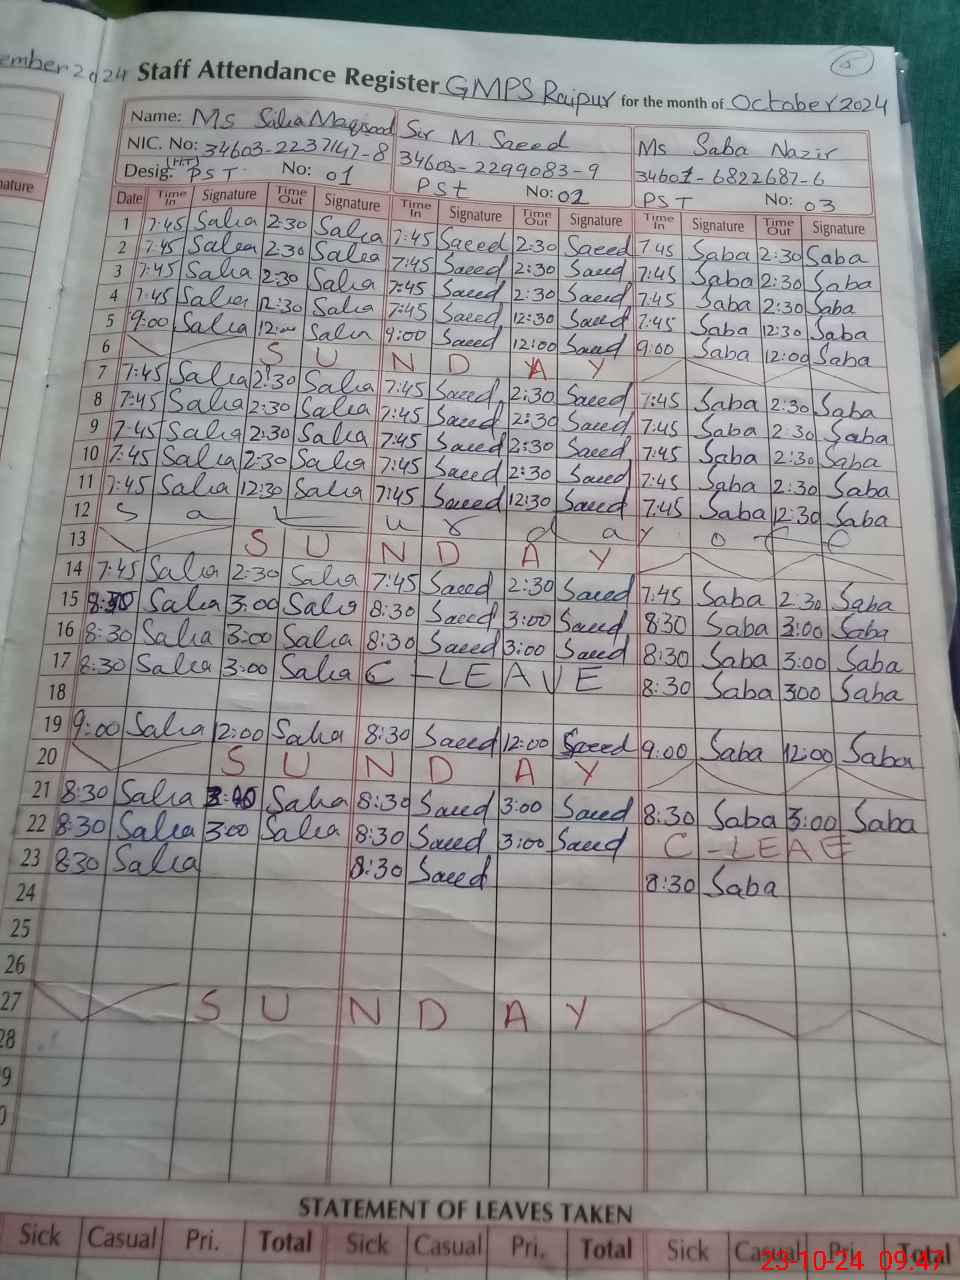 ember 2024
Staff Attendance Register GMPS Raipur for the month of October 2024
5
Name: Ms Salia Maqsood Sir M. Saeed Ms Saba Nazir
NIC. No: 34603-2237147-8 34603-2299083-9 34601-6822687-6
Desig: (H.T) PST No: 01 PSt No: 02 PST No: 03
nature
Date Time In Signature Time Out Signature Time In Signature Time Out Signature Time In Signature Time Out Signature
1 7:45 Salia 2:30 Salia 7:45 Saeed 2:30 Saeed 7:45 Saba 2:30 Saba
2 7:45 Salia 2:30 Salia 7:45 Saeed 2:30 Saeed 7:45 Saba 2:30 Saba
3 7:45 Salia 2:30 Salia 7:45 Saeed 2:30 Saeed 7:45 Saba 2:30 Saba
4 7:45 Salia 12:30 Salia 7:45 Saeed 12:30 Saeed 7:45 Saba 12:30 Saba
5 9:00 Salia 12:00 Salia 9:00 Saeed 12:00 Saeed 9:00 Saba 12:00 Saba
6 S U N D A Y
7 7:45 Salia 2:30 Salia 7:45 Saeed 2:30 Saeed 7:45 Saba 2:30 Saba
8 7:45 Salia 2:30 Salia 7:45 Saeed 2:30 Saeed 7:45 Saba 2:30 Saba
9 7:45 Salia 2:30 Salia 7:45 Saeed 2:30 Saeed 7:45 Saba 2:30 Saba
10 7:45 Salia 2:30 Salia 7:45 Saeed 2:30 Saeed 7:45 Saba 2:30 Saba
11 7:45 Salia 12:30 Salia 7:45 Saeed 12:30 Saeed 7:45 Saba 12:30 Saba
12 S a t u r d a y o f f
13 S U N D A Y
14 7:45 Salia 2:30 Salia 7:45 Saeed 2:30 Saeed 7:45 Saba 2:30 Saba
15 8:30 Salia 3:00 Salia 8:30 Saeed 3:00 Saeed 8:30 Saba 3:00 Saba
16 8:30 Salia 3:00 Salia 8:30 Saeed 3:00 Saeed 8:30 Saba 3:00 Saba
17 8:30 Salia 3:00 Salia C-LEAVE 8:30 Saba 300 Saba
18
19 9:00 Salia 12:00 Salia 8:30 Saeed 12:00 Saeed 9:00 Saba 12:00 Saba
20 S U N D A Y
21 8:30 Salia 3:00 Salia 8:30 Saeed 3:00 Saeed 8:30 Saba 3:00 Saba
22 8:30 Salia 3:00 Salia 8:30 Saeed 3:00 Saeed C-LEAE
23 8:30 Salia 8:30 Saeed 8:30 Saba
24
25
26
27 S U N D A Y
28
9
0
STATEMENT OF LEAVES TAKEN
Sick Casual Pri. Total Sick Casual Pri. Total Sick Casual Pri. Total
23-10-24 09:47